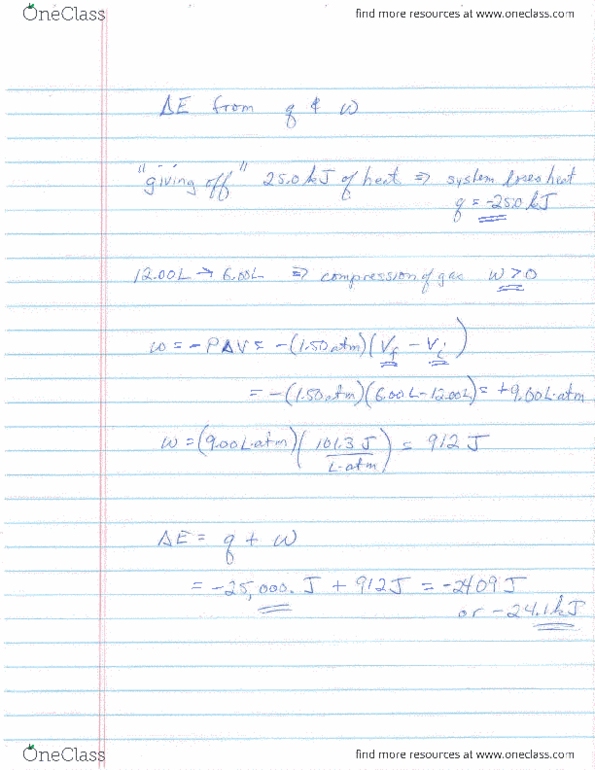 OneClass
find more resources at www.oneclass.com
ΔE from q & w
"giving off" 25.0 kJ of heat ⇒ system loses heat
q = -25.0 kJ
12.00L → 6.00L ⇒ compression of gas w > 0
w = -PΔV = -(1.50 atm)(Vf - Vi)
= -(1.50 atm)(6.00 L - 12.00L) = +9.00L·atm
w = (9.00L·atm)(101.3 J / L·atm) = 912 J
ΔE = q + w
= -25,000. J + 912J = -2409 J
or -24.1 kJ
OneClass
find more resources at www.oneclass.com